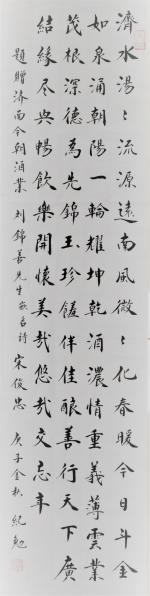 濟水湯〻流源遠南風微〻化春暖今日斗金
如泉涌朝陽一輪耀坤乾酒濃情重義薄雲業
茂根深德為先錦玉珍饈伴佳釀善行天下廣
結緣尽與暢飲樂開懷美哉悠哉交忘年
題贈济南今朝酒業刘錦善先生嵌名詩宋俊忠庚子金秋纪勉